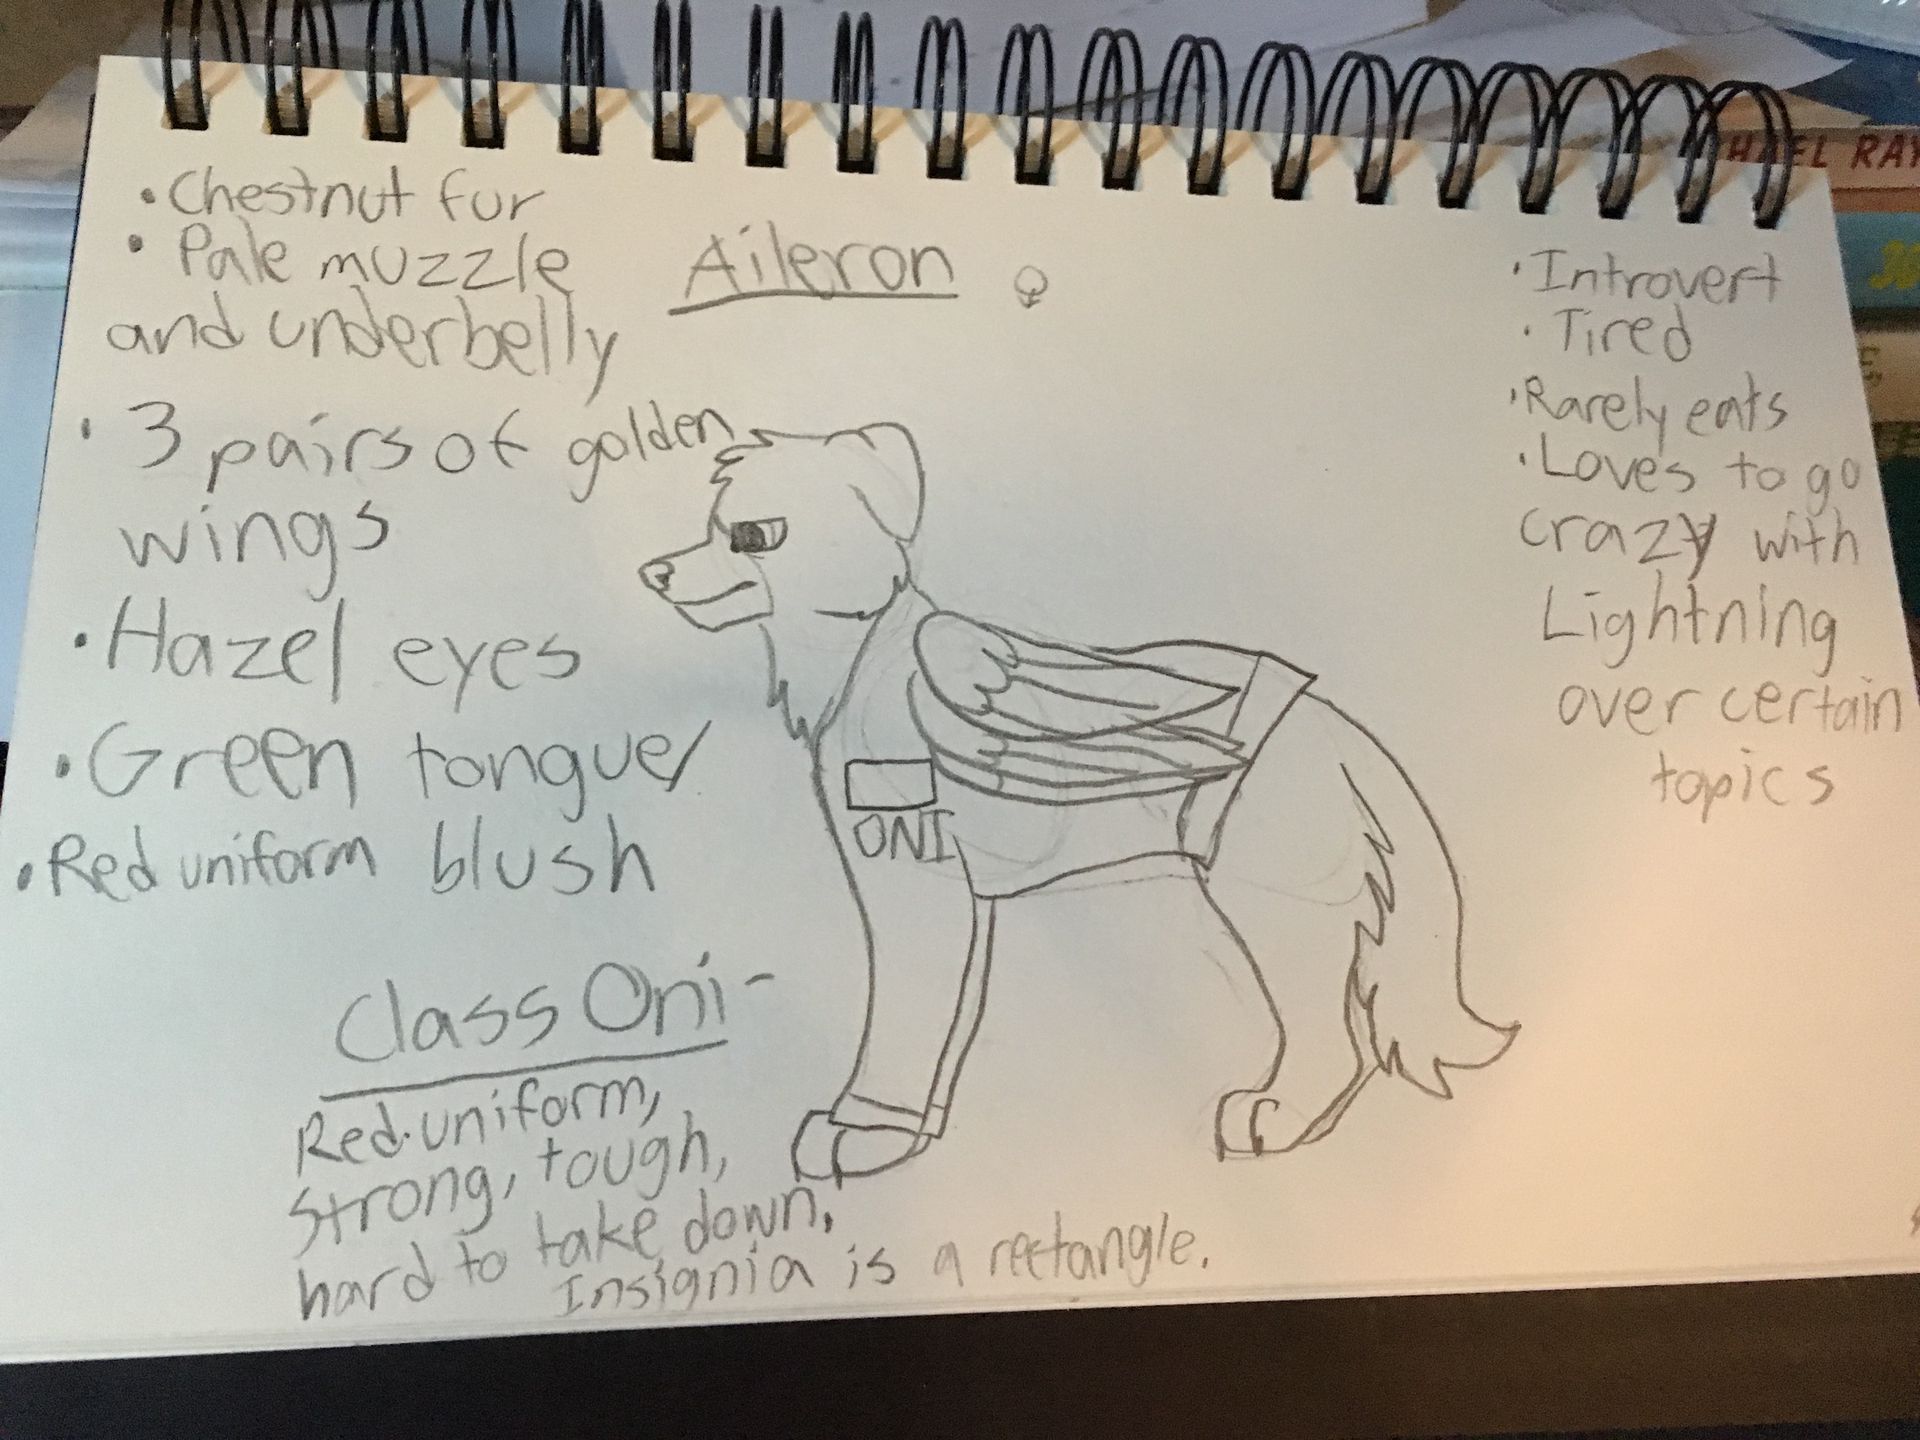 • Chestnut fur
• Pale muzzle
and underbelly
• 3 pairs of golden
wings
• Hazel eyes
• Green tongue/
• Red uniform blush
Aileron ♀
• Introvert
• Tired
• Rarely eats
• Loves to go
crazy with
Lightning
over certain
topics
ONI
Class Oni-
Red uniform,
strong, tough,
hard to take down.
Insignia is a rectangle.